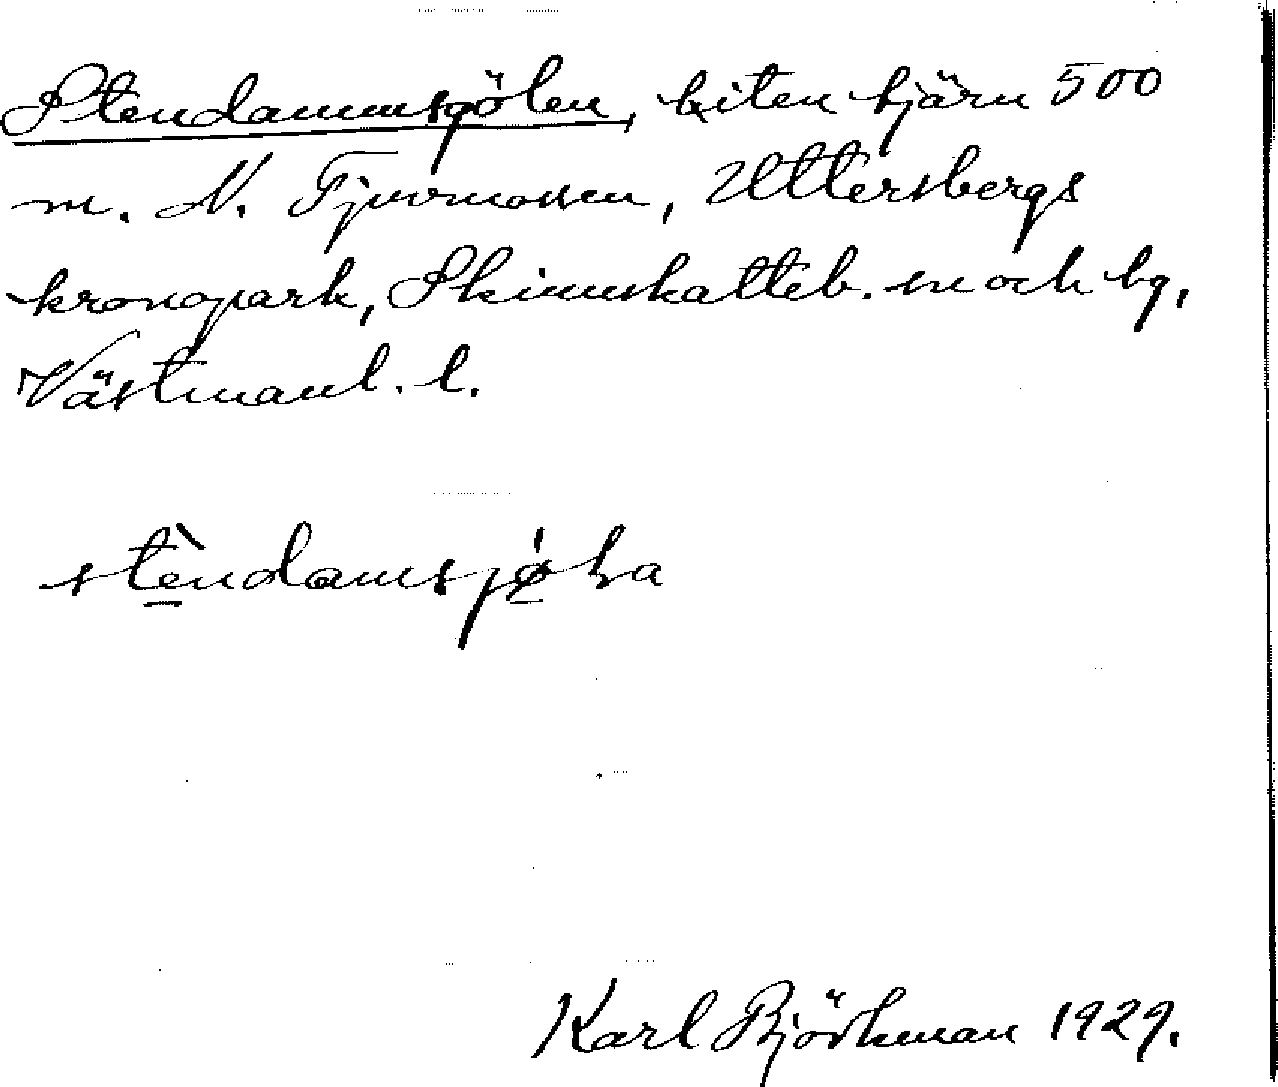 Stendammsgölen, liten tjärn 500
m. N. Tjurmossen, Uttersbergs
kronopark, Skinnskatteb. sn och bg,
Västmanl. l.
stèndamsjø̀ɫa
Karl Björkman 1929.